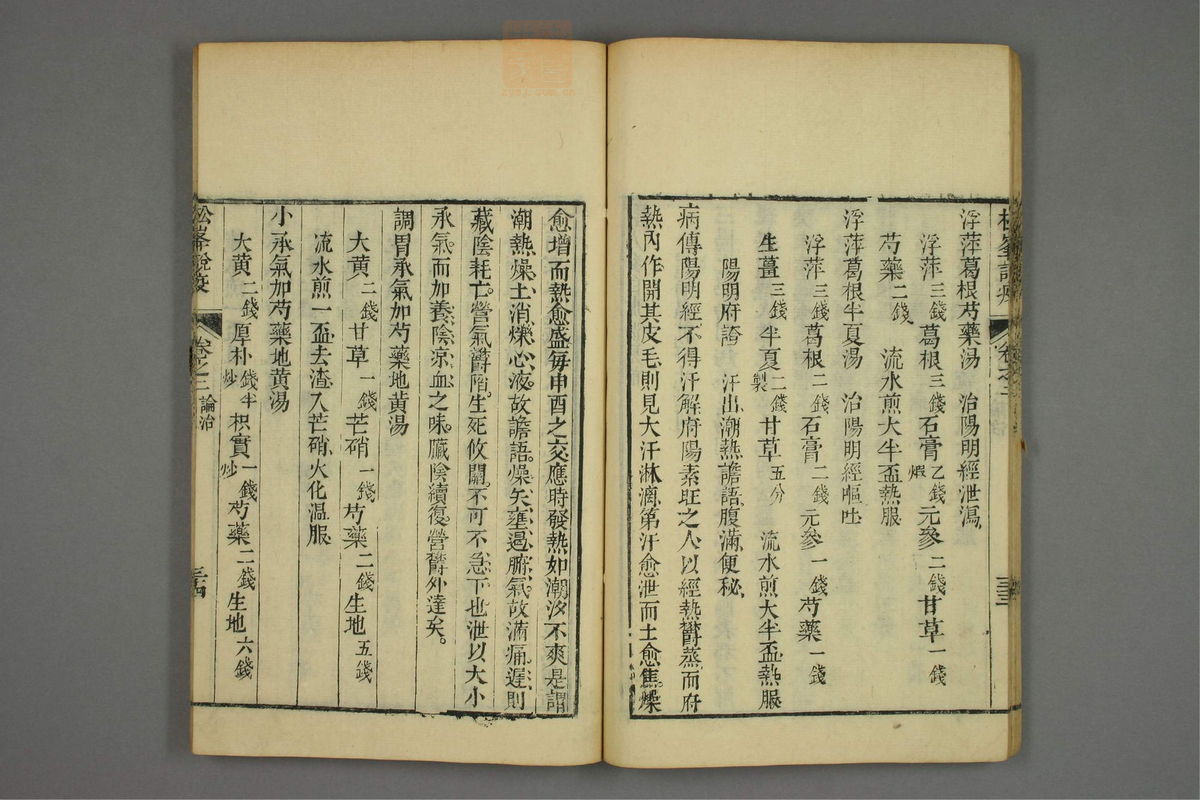 浮萍葛根芍藥湯　治陽明經泄瀉
浮萍三錢　葛根三錢　石膏乙錢煆　元參二錢　甘草一錢
芍藥二錢　流水煎大半盃熱服
浮萍葛根半夏湯　治陽明經嘔吐
浮萍三錢　葛根二錢　石膏二錢　元參一錢　芍藥一錢
生薑三錢　半夏二錢製　甘草五分　流水煎大半盃熱服
陽明府證　汗出潮熱譫語腹滿便秘
病傳陽明經不得汗解府陽素旺之人以經熱欝蒸而府
熱內作開其皮毛則見大汗淋漓第汗愈泄而土愈焦燥
愈增而熱愈盛每申酉之交應時發熱如潮汐不爽是謂
潮熱燥土消爍心液故譫語燥矢壅遏腑氣故滿痛遲則
藏陰耗亡營氣欝陷生死攸關不可不急下也泄以大小
承氣而加養陰凉血之味臟陰續復營欝外達矣
調胃承氣加芍藥地黃湯
大黄二錢　甘草一錢　芒硝一錢　芍藥二錢　生地五錢
流水煎一盃去渣入芒硝火化温服
小承氣加芍藥地黄湯
大黄二錢　厚朴錢半炒　枳實一錢炒　芍藥二錢　生地六錢
松峯說疫　卷之三　論治　三十四